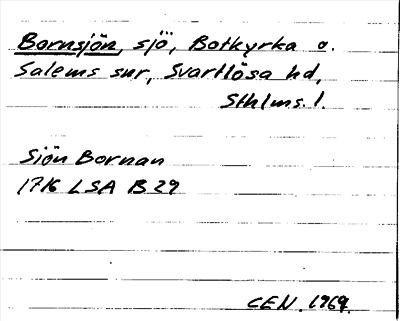 Bornsjön, sjö, Botkyrka o.
Salems snr, Svartlösa hd,
Sthlms. l.
Sjön Bornan
1716 LSA B 29
CEN. 1969.